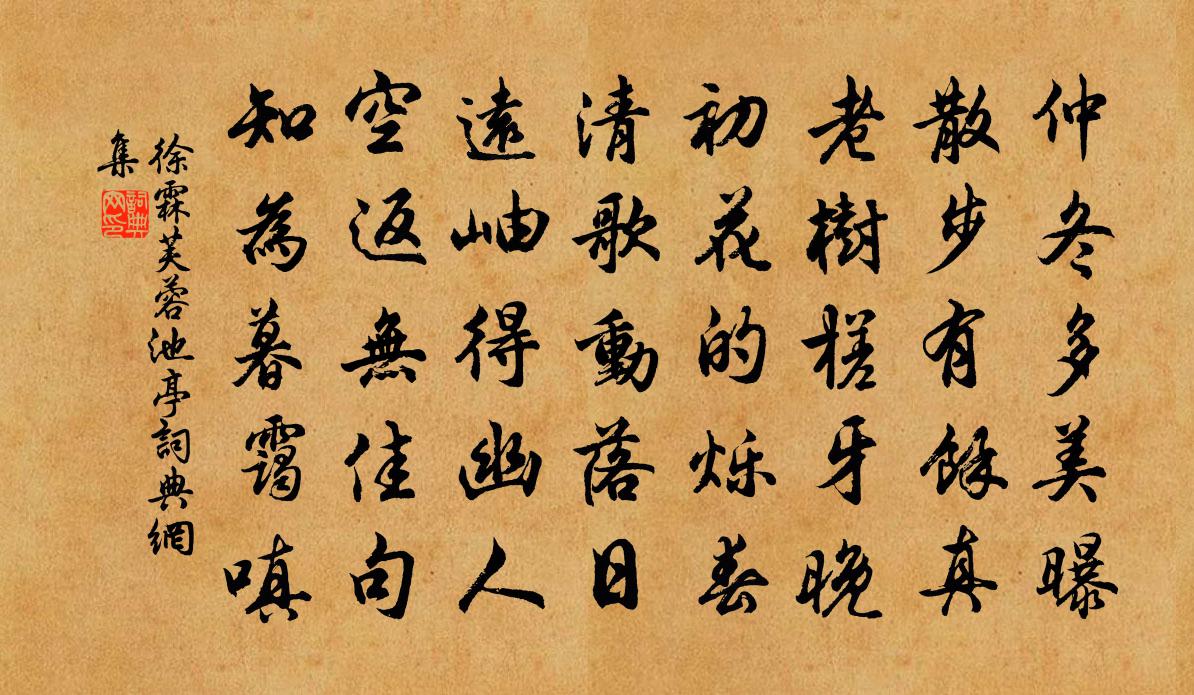 仲冬多美曝
散步有餘真
老樹槎牙晚
初花的烁春
清歌動落日
遠岫得幽人
空返無佳句
知為暮靄嗔
徐霖芙蓉池亭詞典網
集
詞典
网印